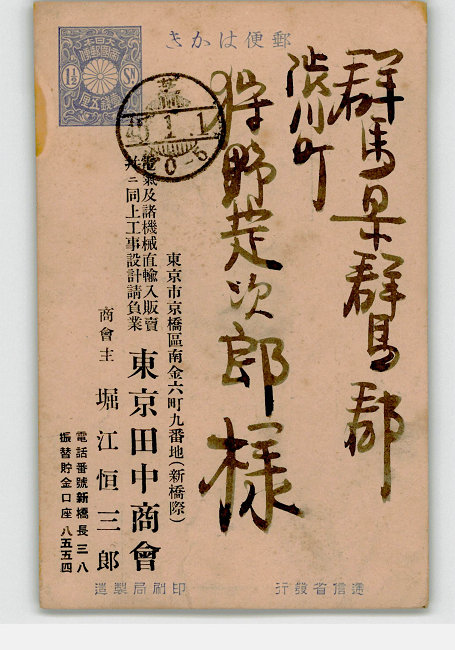 郵便はかき
群馬県群馬郡
渋川町
狩野定次郎様
大日本
帝國郵便
壹錢五厘
1½ SN
1 1
0-6
東京市京橋區南金六町九番地(新橋際)
電氣及諸機械直輸入販賣
并ニ同上工事設計請負業
東京田中商會
商會主 堀江恒三郎
電話番號新橋長三八
振替貯金口座八五五四
逓信省發行
印刷局製造